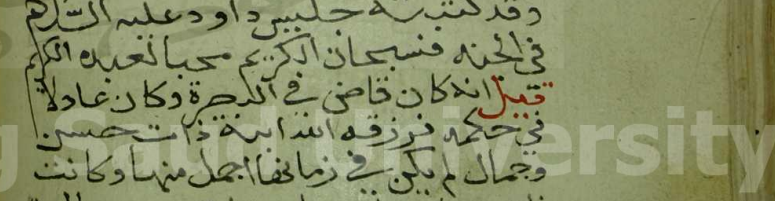 وقد كتبت جليس داود عليه السلام
في الجنه فسبحان الكريم محبا لعبده الكريم
قيل انه كان قاضي في البصرة وكان عادلا
في حكمه فرزقه الله ابنة ذات حسن
وجمال لم يكن في زمانها اجمل منها وكانت
King Saud University